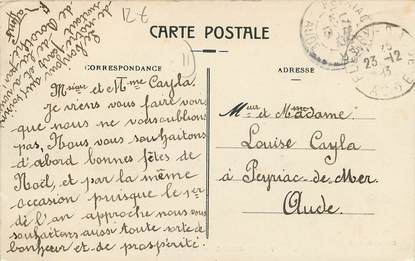 721
CARTE POSTALE
CORRESPONDANCE
ADRESSE
Msieu et Mme Cayla.
Je viens vous faire voir
que nous ne vous oublions
pas, Nous vous souhaitons
d'abord bonnes fêtes de
Noël, et par la même
occasion puisque le 1er
de l'an approche nous vous
souhaitons aussi toute sorte de
bonheur et de prospérité.
Mieur et Madame
Louise Cayla
à Peyriac-de-Mer.
Aude.
23-12
13
AUDE